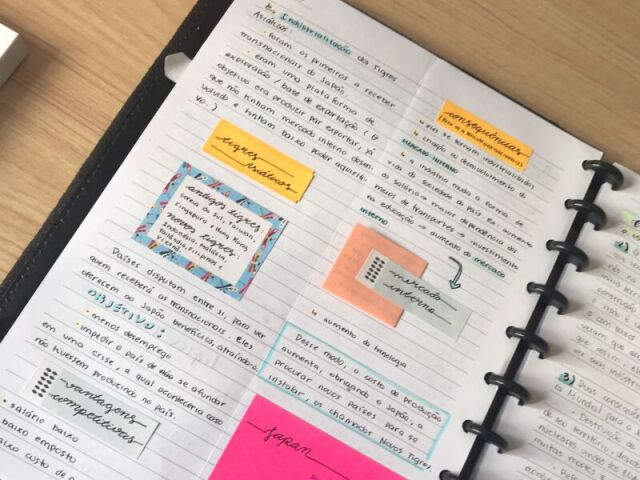 b. Industrialização dos Tigres
Asiáticos:
• Foram os primeiros a receber
transnacionais do Japão.
• eram uma plataforma de
exploração / base de exportação (o
objetivo era produzir por exportar, já
que não tinham mercado interno desen-
volvido e tinham baixo poder aquisiti-
vo.)
tigres
asiáticos
antigos tigres:
Coreia do Sul, Taiwan,
Cingapura e Hong Kong
novos tigres:
Indonésia, Malásia,
Países disputam entre si, para ver
quem receberá as transnacionais, eles
oferecem ao Japão benefícios, atraindo-o
OBJETIVO:
• menos desemprego
• impedir o país de não se afundar
em uma crise, a qual aconteceria caso
não tivessem produzindo no país.
vantagens
competitivas
• salário baixo
baixo imposto
baixo custo de
consequências
↳ eles se tornam industrializados
↳ criação ou desenvolvimento do
mercado interno
↳ a indústria muda a forma de
vida da sociedade do país Ex: aumento
do salário → maior dependência dos
meios de transportes → investimento
na educação → aumento do mercado
interno
mercado
interno
↳ aumento da tecnologia
Desse modo, o custo de produção
aumenta, obrigando o Japão, a
procurar novos países para se
instalar, os chamados Novos Tigres.
Japan
2)
3) Duas